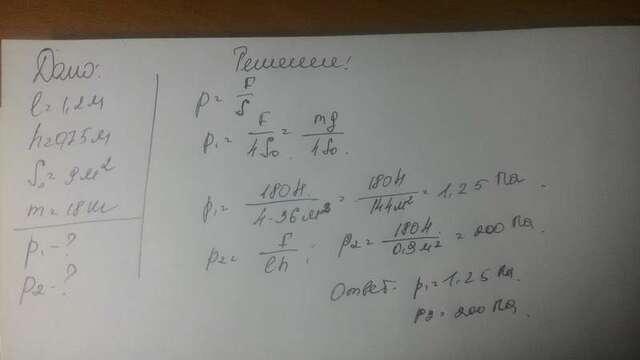 Дано:
l = 1,2 м
h = 0,75 м
S₀ = 9 м²
m = 18 кг
p₁ - ?
p₂ - ?
Решение:
p = F/S
p₁ = F/4S₀ = mg/4S₀.
p₁ = 180 Н/4·36 м² = 180 Н/144 м² = 1,25 Па.
p₂ = F/lh. p₂ = 180 Н/0,9 м² = 200 Па.
Ответ. p₁ = 1,25 Па.
p₂ = 200 Па.